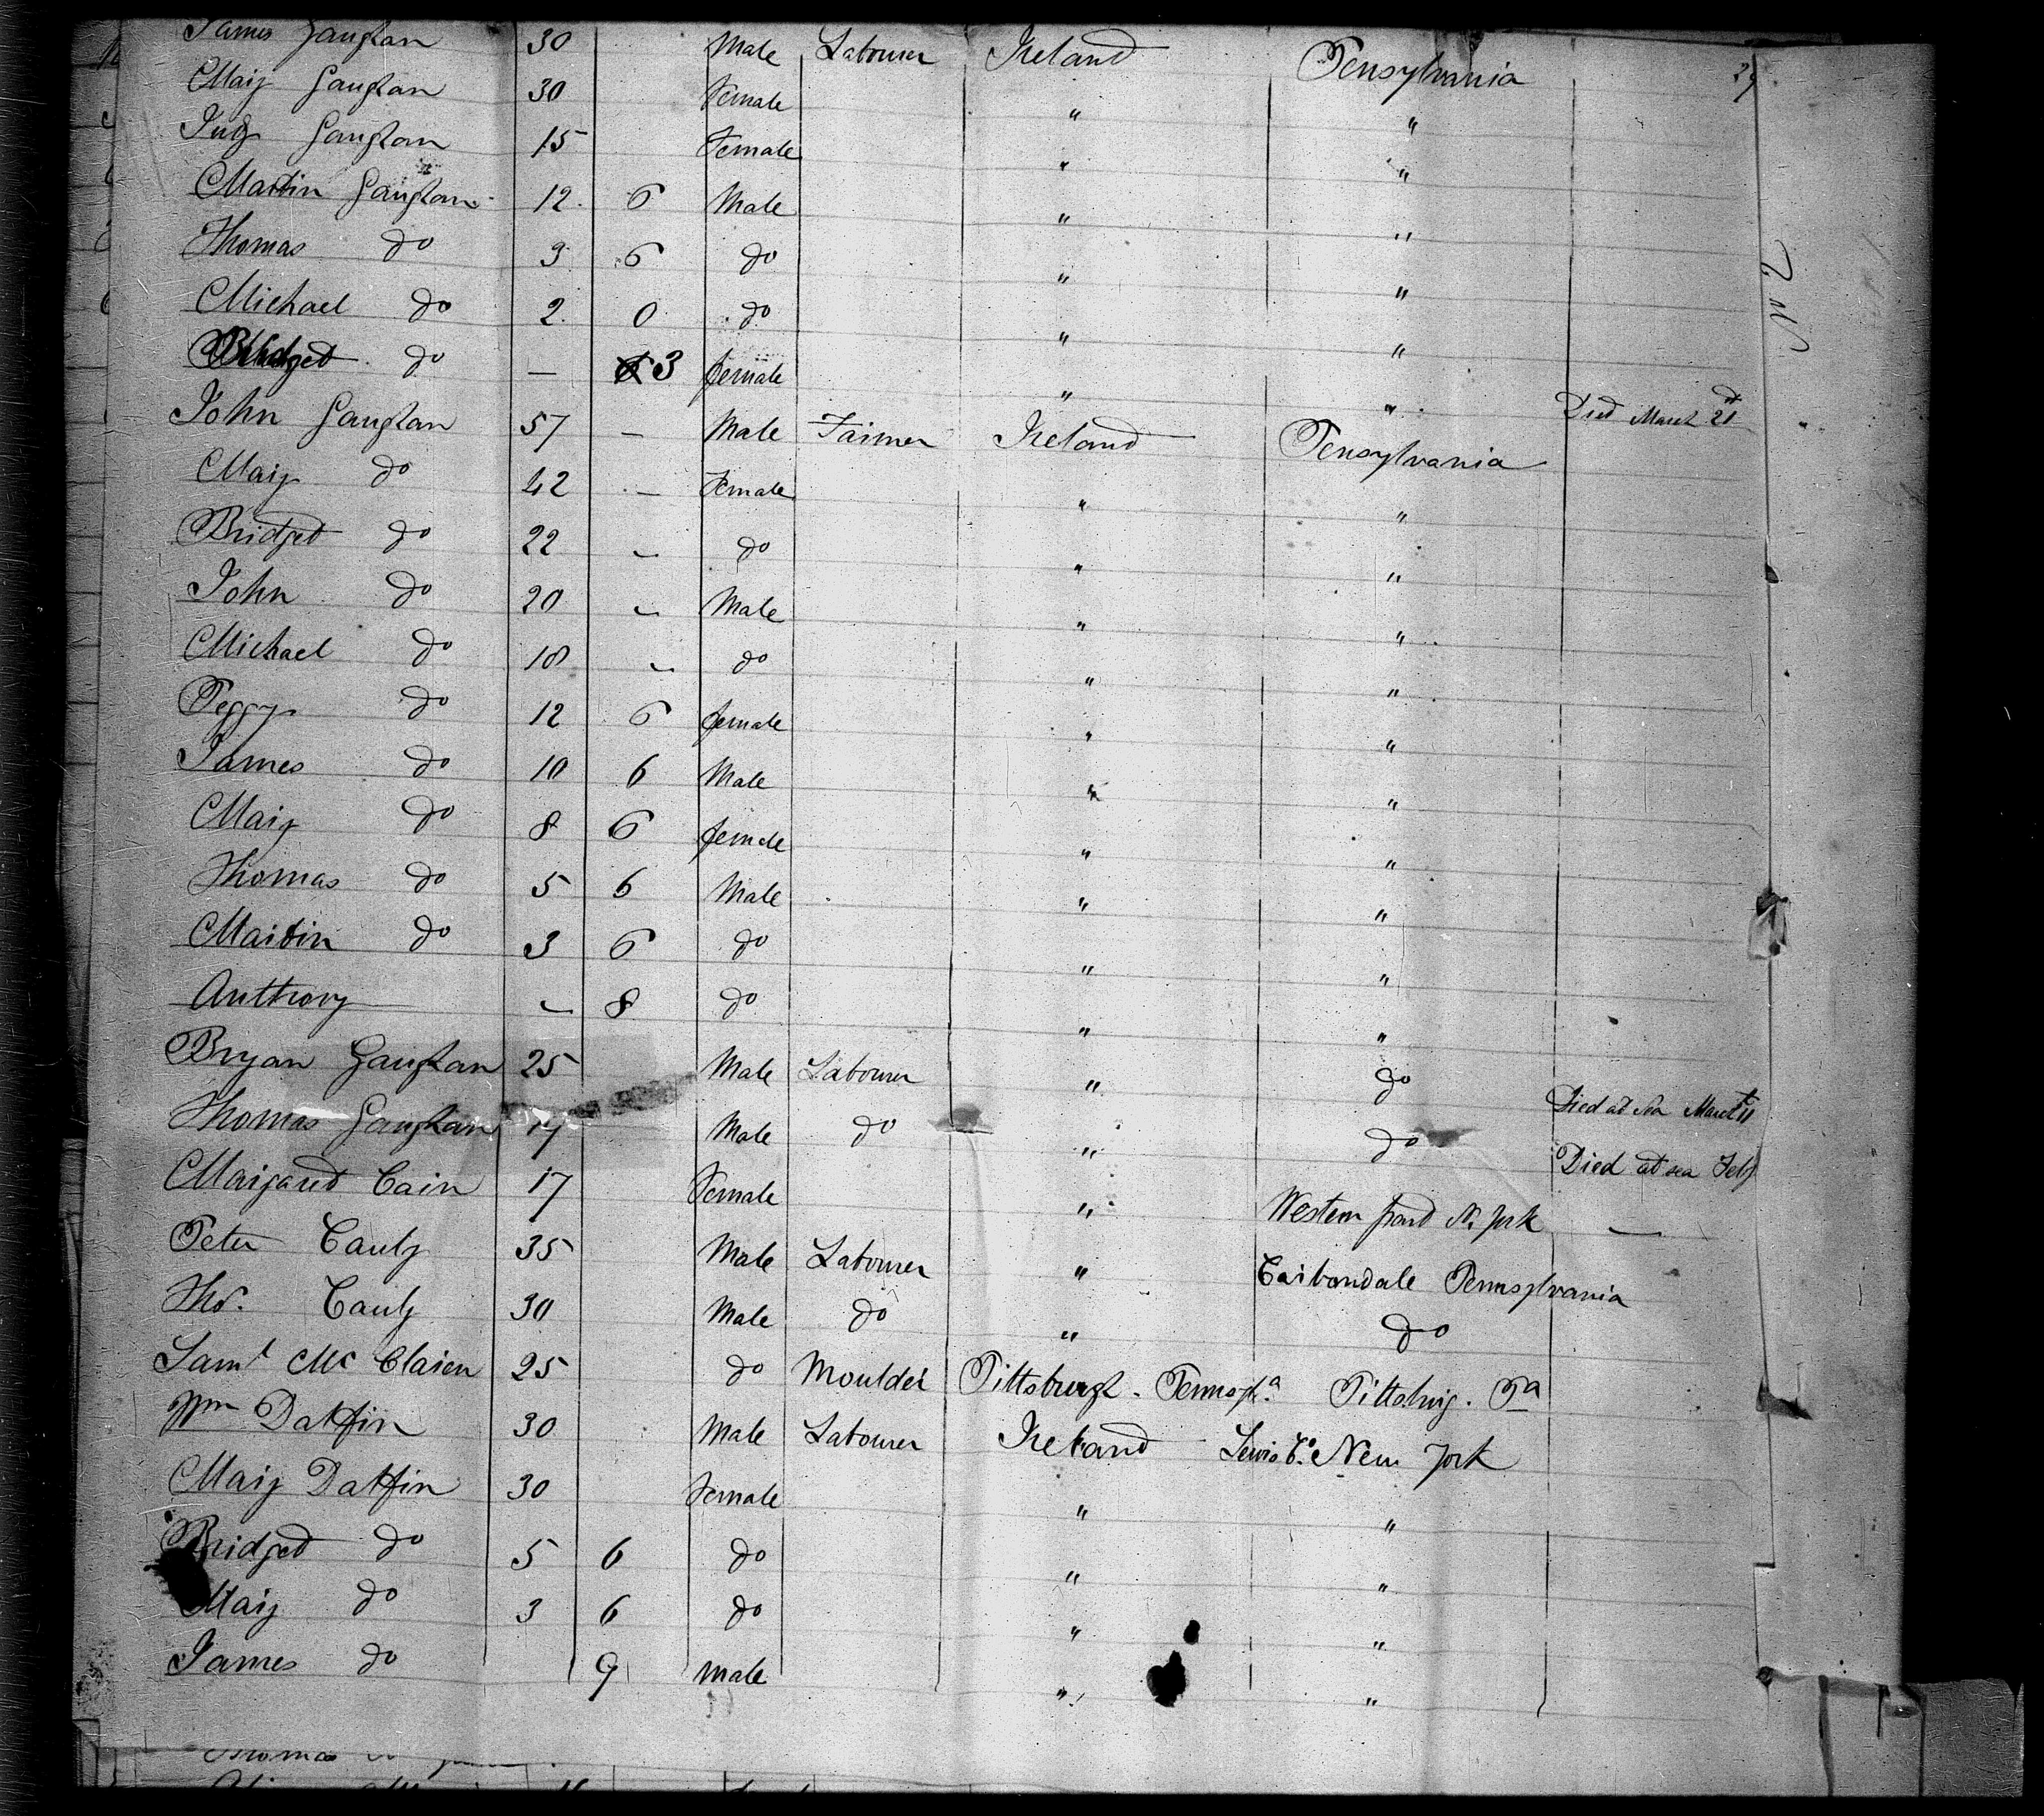 James Gaughan 30 Male Labourer Ireland Pensylvania 29
Mary Gaughan 30 Female " "
Judy Gaughan 15 Female " "
Martin Gaughan 12 6 Male " "
Thomas do 3 6 do " "
Michael do 2 0 do " "
Bridget do — 3 female " " Died March 21st
John Gaughan 57 — Male Farmer Ireland Pensylvania
Mary do 42 — Female " "
Bridget do 22 — do " "
John do 20 — Male " "
Michael do 18 — do " "
Peggy do 12 6 female " "
James do 10 6 Male " "
Mary do 8 6 female " "
Thomas do 5 6 Male " "
Martin do 3 6 do " "
Anthony — 8 do " "
Bryan Gaughan 25 Male Labourer " do Died at sea March 11
Thomas Gaughan Male do " do Died at sea Feb
Margaret Cain 17 Female " Western part N. York —
Peter Cauly 35 Male Labourer " Carbondale Pennsylvania
Thos. Cauly 30 Male do " do
Saml Mc Claren 25 do Moulder Pittsburgh - Pennsya. Pittsburg. Pa
Wm Datfin 30 Male Labourer Ireland Lewis Co. New York
Mary Datfin 30 Female " "
Bridget do 5 6 do " "
Mary do 3 6 do " "
James do 9 male " "
Thomas